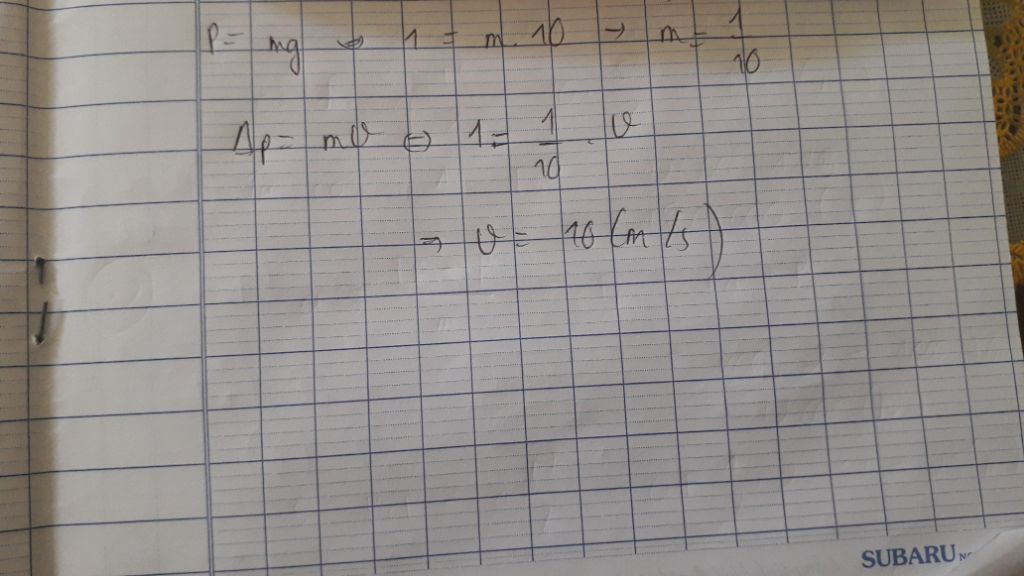 P = mg ⇔ 1 = m . 10 → m = 1/10
Δp = mv ⇔ 1 = 1/10 . v
⇒ v = 10 (m/s)
SUBARU